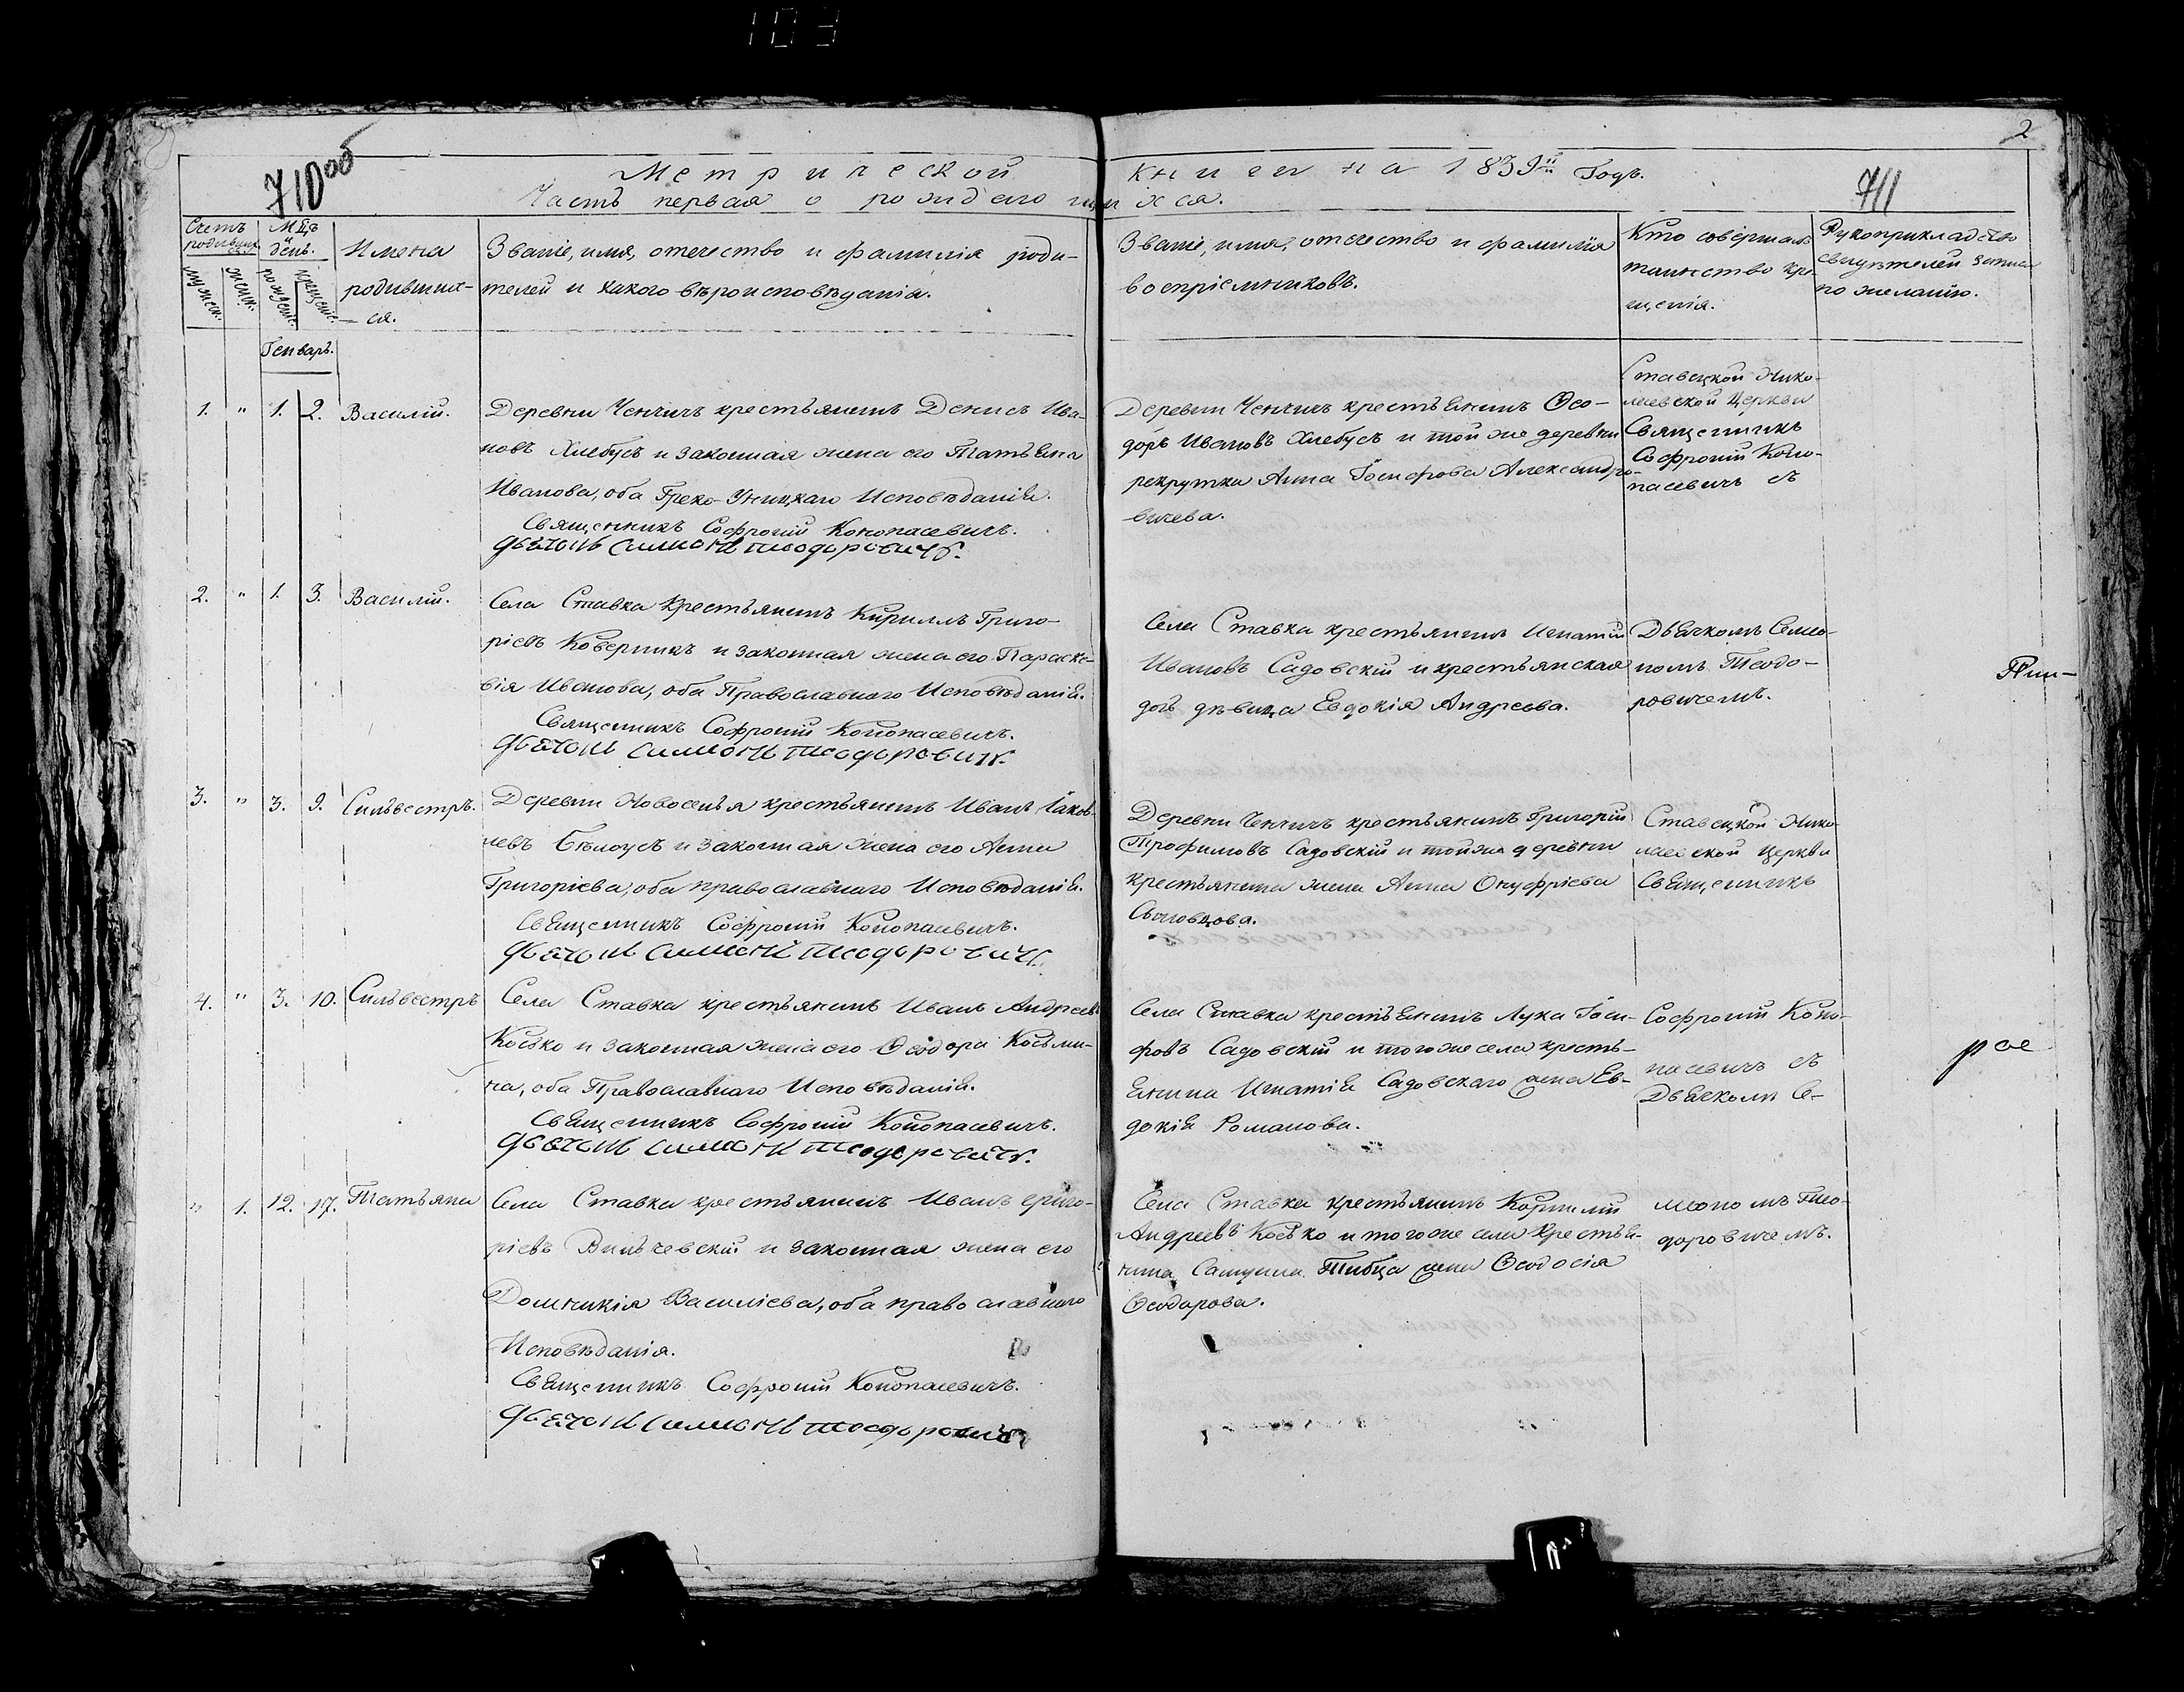 103
2
710об
711
Метрической книги на 1839й Годъ.
Часть первая о рождающихся.
Счетъ родившихся
Мцъ и день.
мужеск.
женск.
рожденіе
крещеніе
Имена
родивших-
ся.
Званіе, имя, отечество и фамилія роди-
телей и какого вѣроисповѣданія.
Званіе, имя, отечество и фамилія
воспріемниковъ.
Кто совершалъ
таинство кре-
щенія.
Рукоприкладство
свидѣтелей записи
по желанію.
Генварь.
1. " 1. 2. Василій.
Деревни Ченчичъ крестьянинъ Денисъ Ива-
новъ Хлебусъ и законная жена его Татьяна
Иванова, оба Греко-Уницкаго Исповѣданія.
Священникъ Софроній Конопасевичъ.
Дьячокъ Симонъ Теодоровичъ.
Деревни Ченчичъ крестьянинъ Ѳео-
доръ Ивановъ Хлебусъ и той же деревни
рекрутка Анна Іосифова Александро-
вичева.
Ставецкой Нико-
лаевской Церкви
Священникъ
Софроній Коно-
пасевичъ съ
2. " 1. 3. Василій.
Села Ставка Крестьянинъ Кириллъ Григо-
ріевъ Коверникъ и законная жена его Параске-
вія Иванова, оба Православнаго Исповѣданія.
Священникъ Софроній Конопасевичъ.
Дьячокъ Симонъ Теодоровичъ.
Села Ставка крестьянинъ Игнатій
Ивановъ Садовскій и крестьянская
дочь дѣвица Евдокія Андреева.
Дьячкомъ Симо-
номъ Теодо-
ровичемъ.
3. " 3. 9. Сильвестръ.
Деревни Новоселья крестьянинъ Иванъ Іаков-
левъ Бѣлоусъ и законная жена его Анна
Григоріева, оба православнаго Исповѣданія.
Священникъ Софроній Конопасевичъ.
Дьячокъ Симонъ Теодоровичъ.
Деревни Ченчичъ крестьянинъ Григорій
Трофимовъ Садовскій и той же деревни
крестьянина жена Анна Онуфріева
Ставецкой Нико-
лаевской Церкви
Священникъ
4. " 3. 10. Сильвестръ
Села Ставка крестьянинъ Иванъ Андреевъ
Косько и законная жена его Ѳеодора Косьми-
на, оба Православнаго Исповѣданія.
Священникъ Софроній Конопасевичъ.
Дьячокъ Симонъ Теодоровичъ.
Села Ставка крестьянинъ Лука Іоси-
фовъ Садовскій и того же села кресть-
янина Игнатія Садовскаго жена Ев-
докія Романова.
Софроній Коно-
пасевичъ съ
Дьячкомъ Си-
рое
" 1. 12. 17. Татьяна
Села Ставка крестьянинъ Иванъ Григо-
ріевъ Вильчевскій и законная жена его
Домникія Василіева, оба православнаго
Исповѣданія.
Священникъ Софроній Конопасевичъ.
Дьячокъ Симонъ Теодоровичъ
Села Ставка крестьянинъ Корнилій
Андреевъ Косько и того же села крестья-
нина жена Ѳеодосія
Ѳеодорова.
мономъ Тео-
доровичемъ.